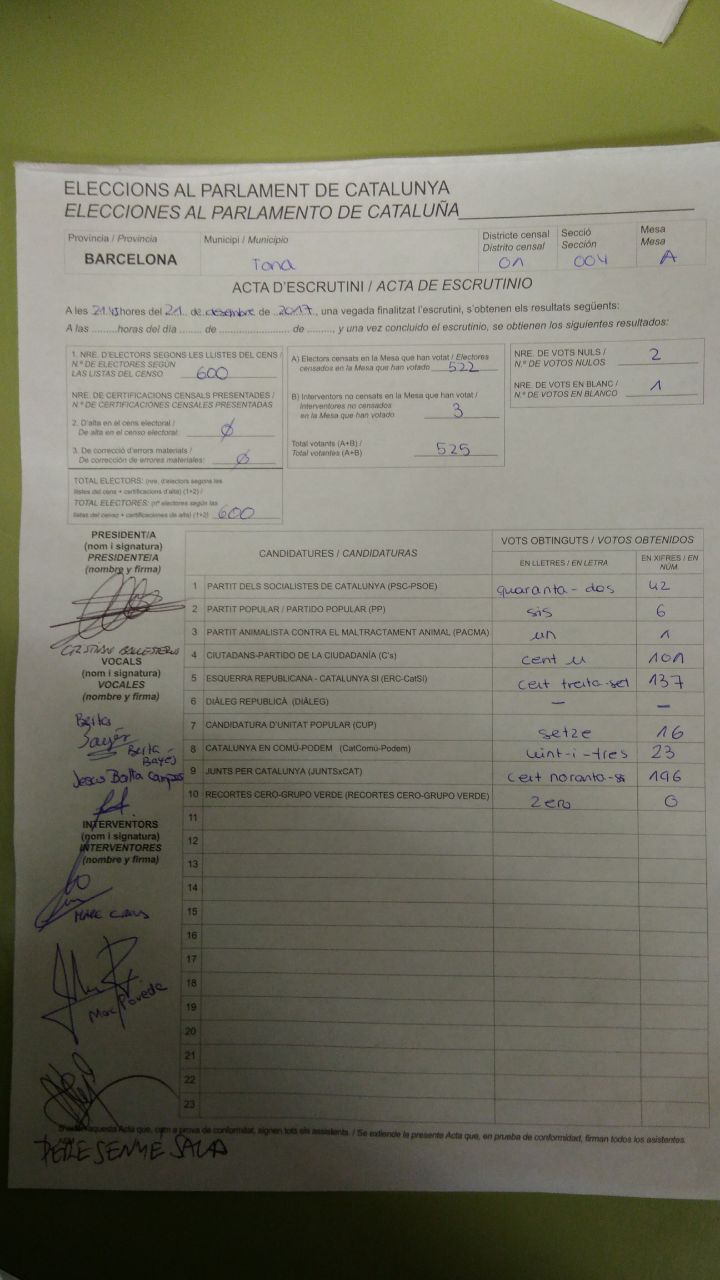 ELECCIONS AL PARLAMENT DE CATALUNYA
ELECCIONES AL PARLAMENTO DE CATALUÑA
Província / Provincia Municipi / Municipio Districte censal Distrito censal Secció Sección Mesa Mesa
BARCELONA Tona 01 004 A
ACTA D'ESCRUTINI / ACTA DE ESCRUTINIO
A les 21.45 hores del 21 de desembre de 2017, una vegada finalitzat l'escrutini, s'obtenen els resultats següents:
A las ........horas del día ....... de ........................ de ........, y una vez concluido el escrutinio, se obtienen los siguientes resultados:
1. NRE. D'ELECTORS SEGONS LES LLISTES DEL CENS /
N.º DE ELECTORES SEGÚN
LAS LISTAS DEL CENSO 600
NRE. DE CERTIFICACIONS CENSALS PRESENTADES /
N.º DE CERTIFICACIONES CENSALES PRESENTADAS
2. D'alta en el cens electoral /
De alta en el censo electoral: Ø
3. De correcció d'errors materials /
De corrección de errores materiales: Ø
TOTAL ELECTORS: (nre. d'electors segons les
llistes del cens + certificacions d'alta) (1+2) /
TOTAL ELECTORES: (nº electores según las
listas del censo + certificaciones de alta) (1+2) 600
A) Electors censats en la Mesa que han votat / Electores
censados en la Mesa que han votado 522
B) Interventors no censats en la Mesa que han votat /
Interventores no censados
en la Mesa que han votado 3
Total votants (A+B) /
Total votantes (A+B) 525
NRE. DE VOTS NULS /
N.º DE VOTOS NULOS 2
NRE. DE VOTS EN BLANC /
N.º DE VOTOS EN BLANCO 1
PRESIDENT/A
(nom i signatura)
PRESIDENTE/A
(nombre y firma)
CRISTIAN BALLESTEROS
VOCALS
(nom i signatura)
VOCALES
(nombre y firma)
Berta
Bayés
Berta
Bayés
Jesus Campos
INTERVENTORS
(nom i signatura)
INTERVENTORES
(nombre y firma)
MARC
Marc Poveda
CANDIDATURES / CANDIDATURAS VOTS OBTINGUTS / VOTOS OBTENIDOS
EN LLETRES / EN LETRA EN XIFRES / EN NÚM.
1 PARTIT DELS SOCIALISTES DE CATALUNYA (PSC-PSOE) quaranta-dos 42
2 PARTIT POPULAR / PARTIDO POPULAR (PP) sis 6
3 PARTIT ANIMALISTA CONTRA EL MALTRACTAMENT ANIMAL (PACMA) un 1
4 CIUTADANS-PARTIDO DE LA CIUDADANÍA (C's) cent u 101
5 ESQUERRA REPUBLICANA - CATALUNYA SI (ERC-CatSI) cent trenta-set 137
6 DIÀLEG REPUBLICÀ (DIÀLEG) - -
7 CANDIDATURA D'UNITAT POPULAR (CUP) setze 16
8 CATALUNYA EN COMÚ-PODEM (CatComú-Podem) vint-i-tres 23
9 JUNTS PER CATALUNYA (JUNTSxCAT) cent noranta-sis 196
10 RECORTES CERO-GRUPO VERDE (RECORTES CERO-GRUPO VERDE) zero 0
11
12
13
14
15
16
17
18
19
20
21
22
23
aquesta Acta que, com a prova de conformitat, signen tots els assistents. / Se extiende la presente Acta que, en prueba de conformidad, firman todos los asistentes.
SALA